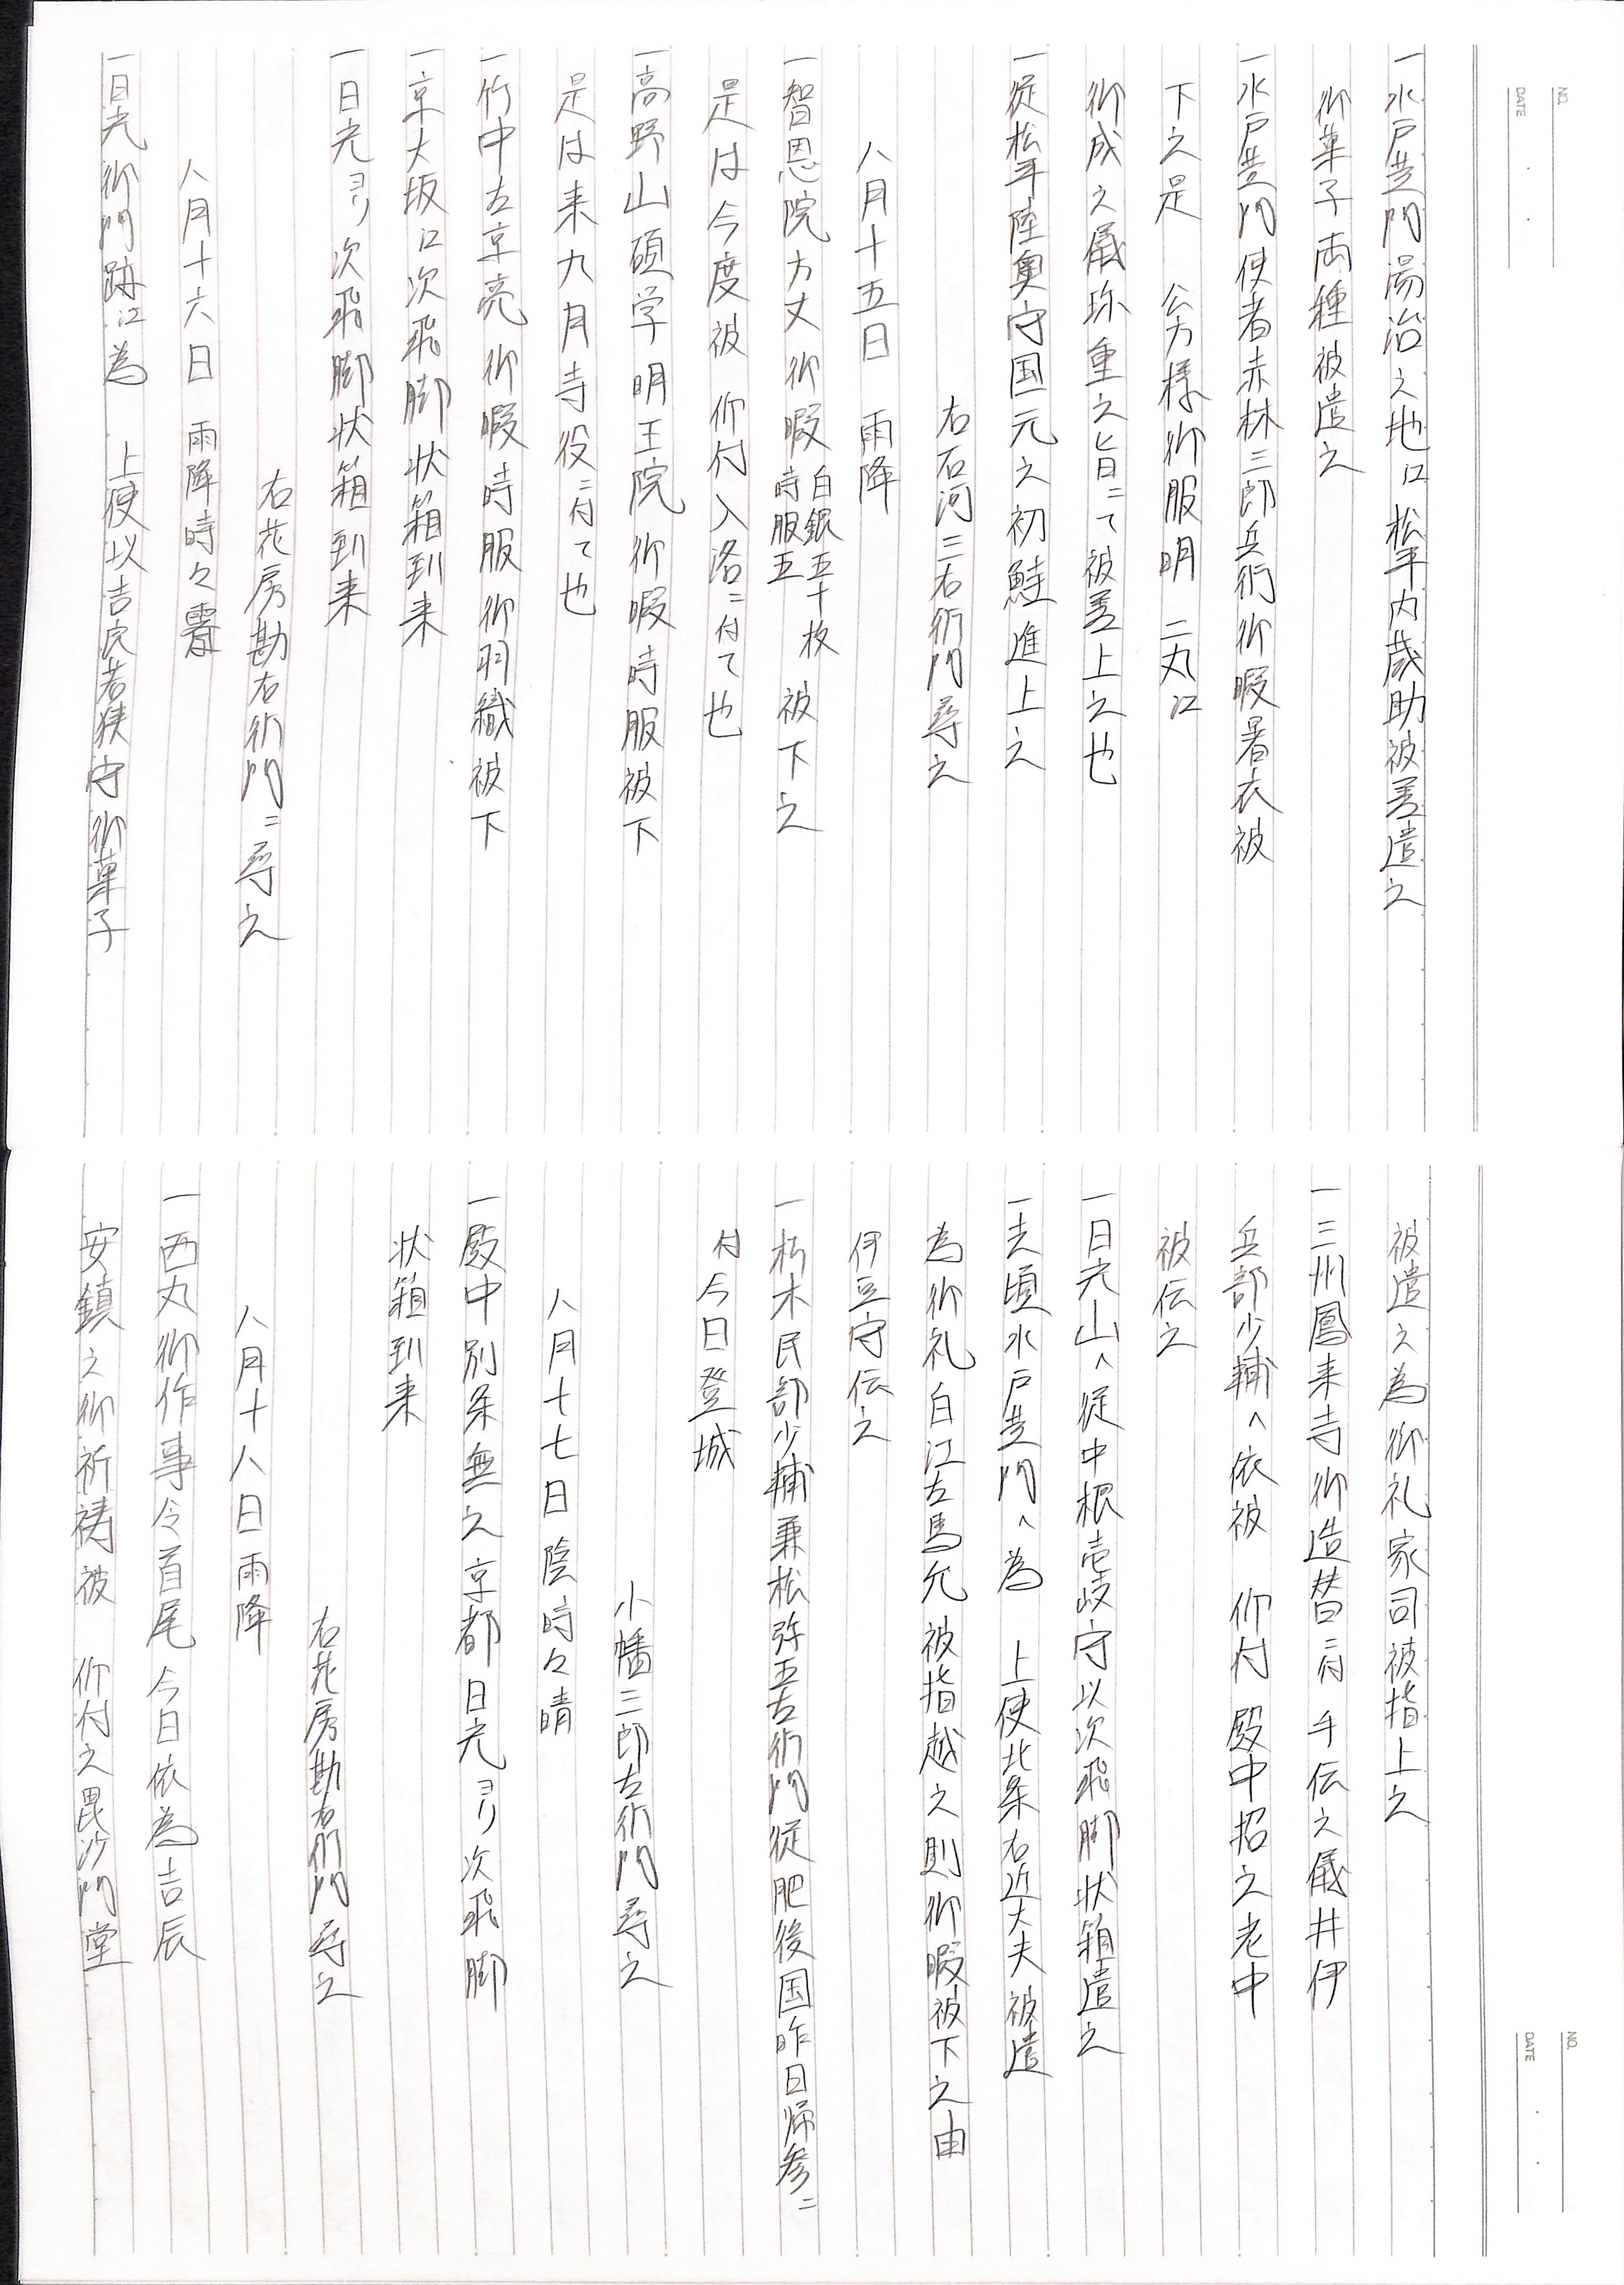 NO.
DATE
一水戸黄門湯治之地江松平内蔵助被差遣之
御菓子両種被遣之
一水戸黄門使者赤林三郎兵衛御暇暑衣被
下之是 公方様御服明 二丸江
御成之儀珎重之旨ニて被差上之也
一従松平陸奥守国元之初鮭進上之
右石河三右衛門尋之
八月十五日 雨降
一智恩院方丈御暇 白銀五十枚 時服五 被下之
是は今度被 仰付入洛ニ付て也
一高野山碩学明王院御暇時服被下
是は来九月寺役ニ付て也
一竹中左京亮御暇時服御羽織被下
一京大坂江次飛脚状箱到来
一日光ヨリ次飛脚状箱到来
右花房勘右衛門ニ尋之
八月十六日 雨降時々霽
一日光御門跡江為 上使以吉良若狭守御菓子
NO.
DATE
被遣之為御礼家司被指上之
一三州鳳来寺御造替ニ付手伝之儀井伊
兵部少輔へ依被 仰付殿中招之老中
被伝之
一日光山へ従中根壱岐守以次飛脚状箱遣之
一去頃水戸黄門へ為 上使北条右近大夫被遣
為御礼白江左馬允被指越之則御暇被下之由
伊豆守伝之
一朽木民部少輔兼松弥五左衛門従肥後国昨日帰参ニ
付今日登城
小幡三郎左衛門尋之
八月十七日 陰時々晴
一殿中別条無之京都日光ヨリ次飛脚
状箱到来
右花房勘右衛門尋之
八月十八日雨降
一西丸御作事令首尾今日依為吉辰
安鎮之御祈祷被 仰付之毘沙門堂